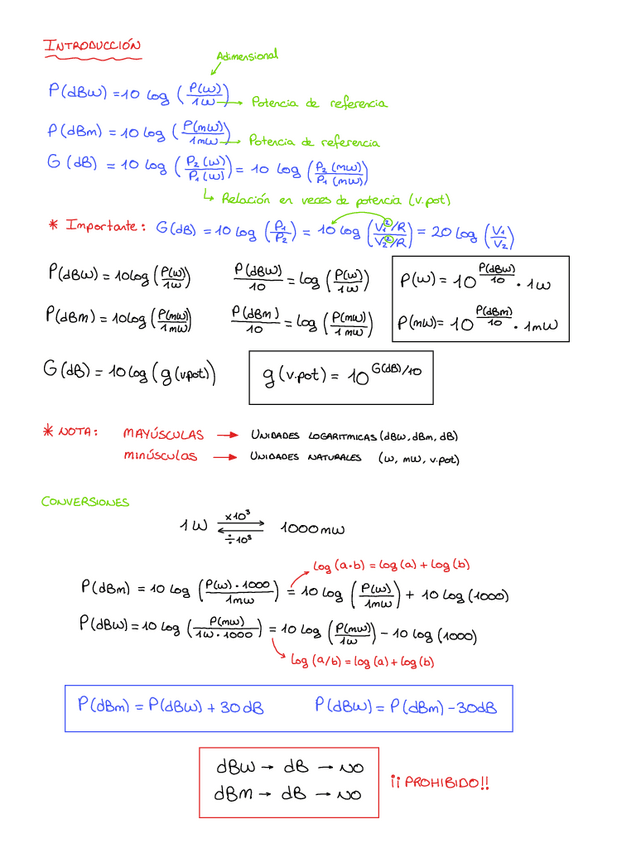 INTRODUCCIÓN
Adimensional
P(dBw) = 10 log (P(w)/1w) → Potencia de referencia
P(dBm) = 10 log (P(mw)/1mw) → Potencia de referencia
G (dB) = 10 log (P₂(w)/P₁(w)) = 10 log (P₂(mw)/P₁(mw))
↳ Relación en veces de potencia (v.pot)
* Importante: G(dB) = 10 log (P₁/P₂) = 10 log (V₁²/R / V₂²/R) = 20 log (V₁/V₂)
P(dBw) = 10log (P(w)/1w) P(dBw)/10 = log (P(w)/1w) P(w) = 10^(P(dBw)/10) · 1w
P(dBm) = 10log (P(mw)/1mw) P(dBm)/10 = log (P(mw)/1mw) P(mw) = 10^(P(dBm)/10) · 1mw
G(dB) = 10 log (g(v.pot)) g(v.pot) = 10^(G(dB)/10)
* NOTA: MAYÚSCULAS → UNIDADES LOGARITMICAS (dBw, dBm, dB)
MINÚSCULAS → UNIDADES NATURALES (w, mw, v.pot)
CONVERSIONES
×10³
1 W ⇄ 1000 mw
÷10³
log (a·b) = log(a) + log(b)
P(dBm) = 10 log (P(w)·1000/1mw) = 10 log (P(w)/1mw) + 10 log (1000)
P(dBw) = 10 log (P(mw)/1w·1000) = 10 log (P(mw)/1w) − 10 log (1000)
log (a/b) = log(a) + log(b)
P(dBm) = P(dBw) + 30 dB P(dBw) = P(dBm) − 30dB
dBw → dB → NO
dBm → dB → NO
¡¡ PROHIBIDO!!